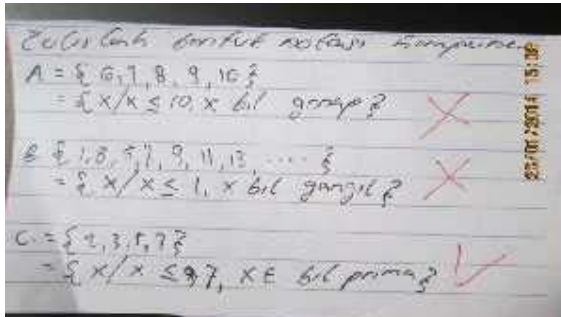 Tulislah bentuk notasi himpunan
A = { 6, 7, 8, 9, 10 }
= { x/x ≤ 10, x bil genap }
B { 1, 3, 5, 7, 9, 11, 13, .... }
= { x/x ≤ 1, x bil ganjil }
C. = { 2, 3, 5, 7 }
= { x/x ≤ 7, x ∈ bil prima }
23/01/2014 15:09